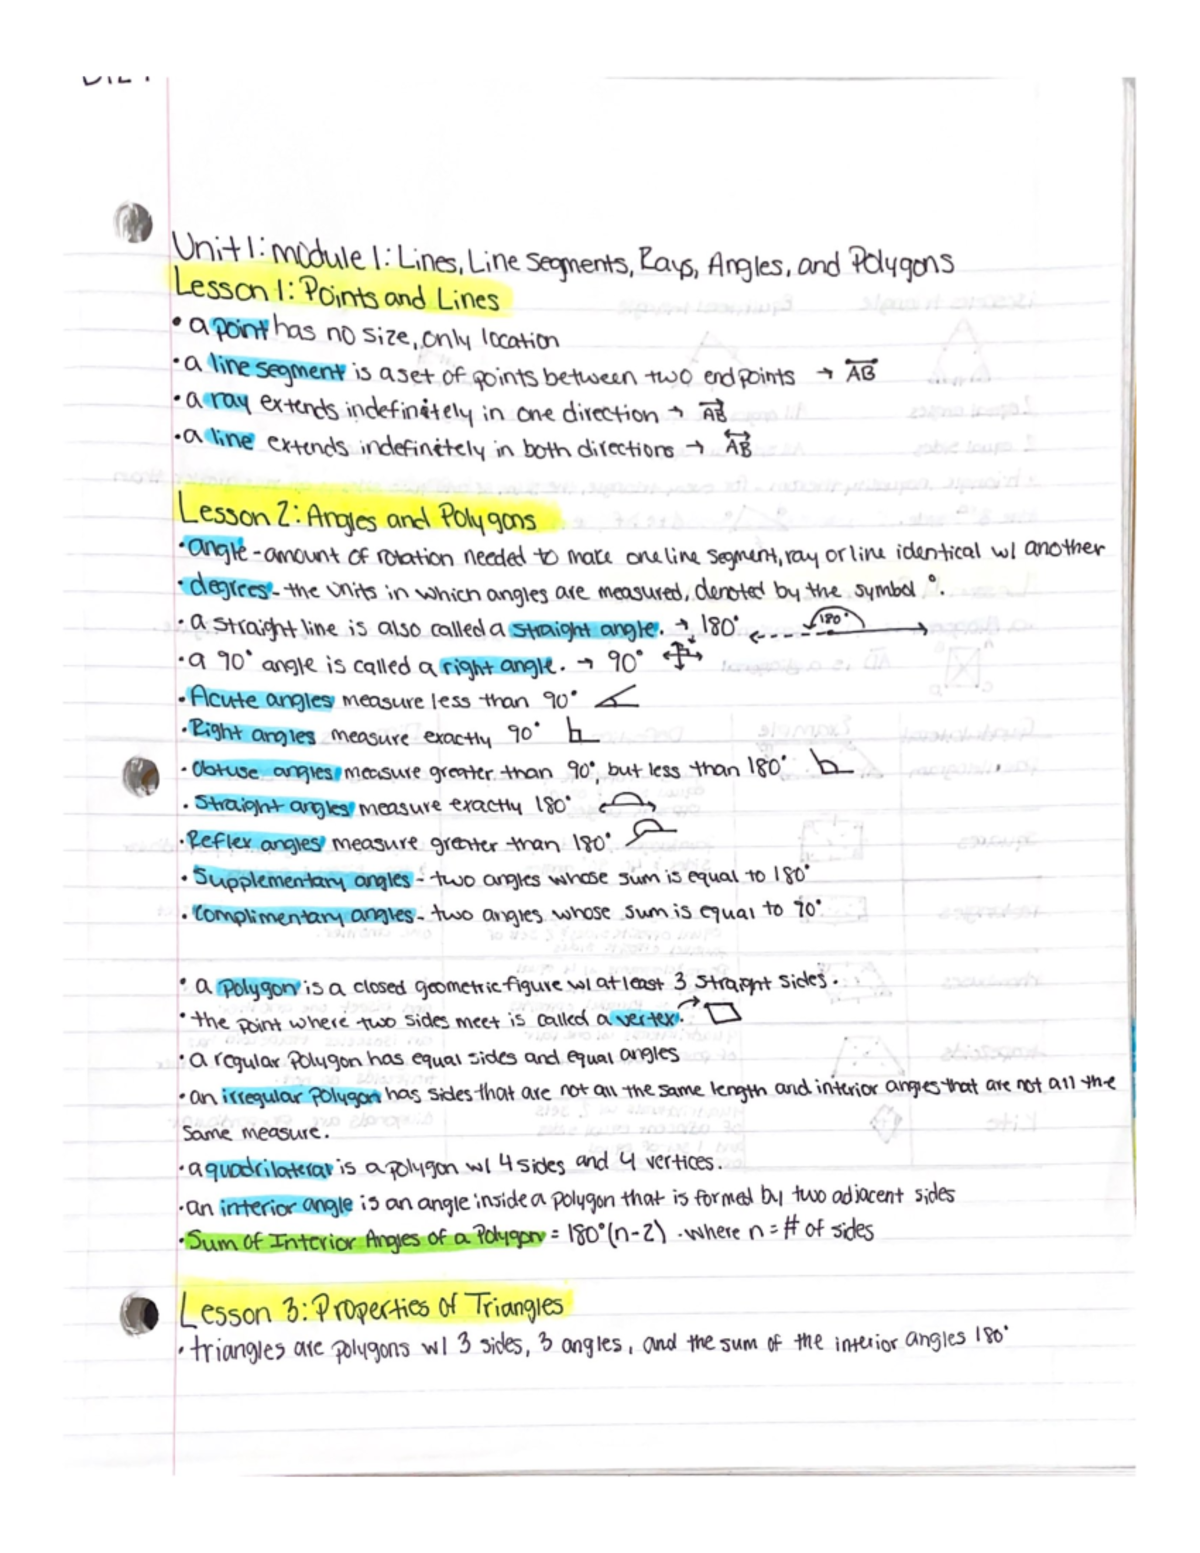 Unit 1: module 1: Lines, Line segments, Rays, Angles, and Polygons
Lesson 1: Points and Lines
• a point has no size, only location
• a line segment is a set of points between two endpoints → AB
• a ray extends indefinitely in one direction → AB
• a line extends indefinitely in both directions → AB
Lesson 2: Angles and Polygons
• angle - amount of rotation needed to make one line segment, ray or line identical w/ another
• degrees - the units in which angles are measured, denoted by the symbol °.
• a straight line is also called a straight angle. → 180° 180°
• a 90° angle is called a right angle. → 90°
• Acute angles measure less than 90°
• Right angles measure exactly 90°
• Obtuse angles measure greater than 90°, but less than 180°
• Straight angles measure exactly 180°
• Reflex angles measure greater than 180°
• Supplementary angles - two angles whose sum is equal to 180°
• Complimentary angles - two angles whose sum is equal to 90°
• a polygon is a closed geometric figure w/ at least 3 straight sides.
• the point where two sides meet is called a vertex.
• a regular polygon has equal sides and equal angles
• an irregular polygon has sides that are not all the same length and interior angles that are not all the
same measure.
• a quadrilateral is a polygon w/ 4 sides and 4 vertices.
• an interior angle is an angle inside a polygon that is formed by two adjacent sides
• Sum of Interior Angles of a Polygon = 180°(n-2) • where n = # of sides
Lesson 3: Properties of Triangles
• triangles are polygons w/ 3 sides, 3 angles, and the sum of the interior angles 180°